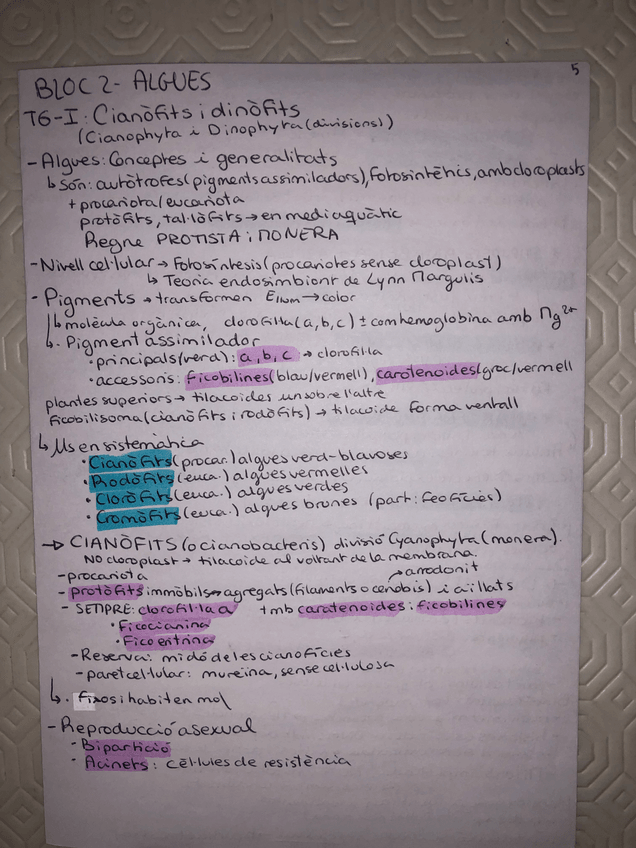 5
BLOC 2- ALGUES
T6-I: Cianòfits i dinòfits
(Cianophyta i Dinophyta (divisions))
- Algues: Conceptes i generalitats
↳ Són: autòtrofes (pigments assimiladors), fotosintètics, amb cloroplasts
+ procariota/eucariota
protòfits, tal·lòfits → en medi aquàtic
Regne PROTISTA i MONERA
- Nivell cel·lular → Fotosíntesi (procariotes sense cloroplast)
↳ Teoria endosimbiont de Lynn Margulis
- Pigments → transformen Ellum → color
↳ molècula orgànica, clorofil·la (a, b, c) ± com hemoglobina amb Mg2+
↳ · Pigment assimilador
· principals (verd): a, b, c → clorofil·la
· accessoris: ficobilines (blau/vermell), carotenoides (groc/vermell
plantes superiors → tilacoides un sobre l'altre
ficobilisoma (cianòfits i rodòfits) → tilacoide forma ventall
↳ Us en sistemàtica
· Cianòfits (procar.) algues verd-blavoses
· Rodòfits (euca.) algues vermelles
· Cloròfits (euca.) algues verdes
· Cromòfits (euca.) algues brunes (part: feofícies)
→ CIANÒFITS (o cianobacteris) divisió Cyanophyta (monera).
NO cloroplast → tilacoide al voltant de la membrana.
- procariota → arrodonit
- protòfits immòbils → agregats (filaments o cenobis) i aïllats
- SEMPRE: clorofil·la a + mb carotenoides i ficobilines
· Ficocianina
· Ficoeritrina
- Reserva: midó de les cianofícies
- paret cel·lular: mureina, sense cel·lulosa
↳ · fixos i habiten mol
- Reproducció asexual
- Bipartició
- Acinets: cèl·lules de resistència